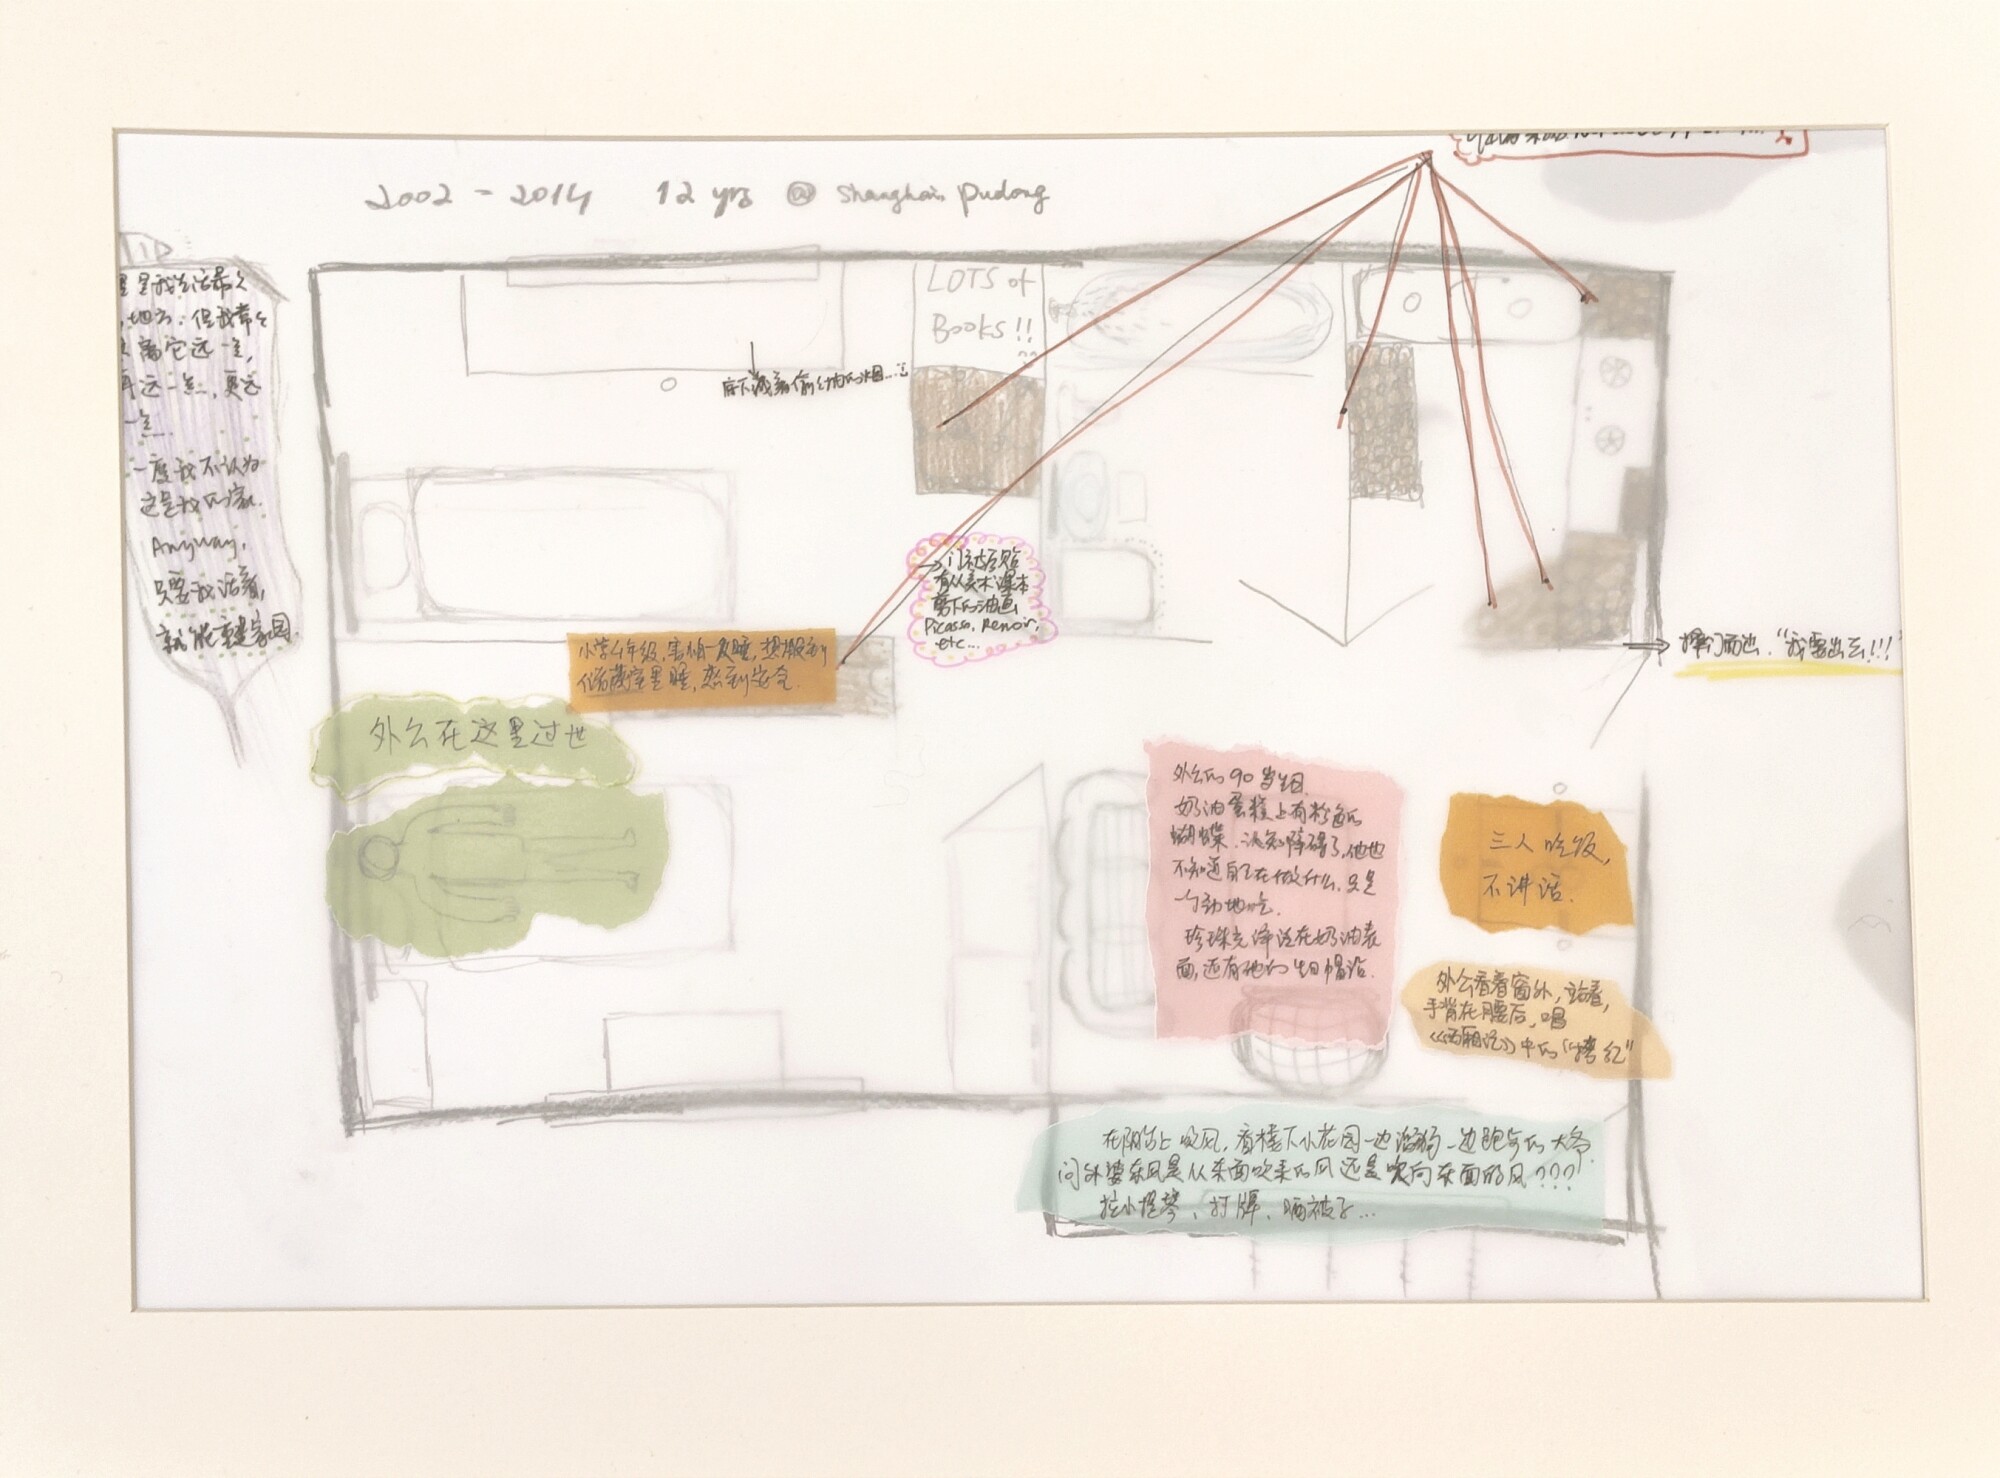 2002 - 2014 12 yrs @ Shanghai Pudong
是我生活最久
地方.但我常常
离它远一点,
再远一点,更远
一点.
一度我不认为
这是我的家.
Anyway,
只要我活着,
就能重建家园.
LOTS of
Books!!
底下藏着偷外公的烟...
门背后贴
有从美术课本
剪下的油画
Picasso, Renoir,
etc...
小学4年级,害怕一个人睡,想搬到
储藏室里睡,感到安全.
外公在这里过世
摔门而出."我要出去!!!"
外公的90岁生日.
奶油蛋糕上有粉色的
蝴蝶.认知障碍了,他也
不知道自己在做什么,只是
一个劲地吃.
珍珠光泽沾在奶油表
面,还有他的生日帽沿.
三人吃饭,
不讲话.
外公看着窗外,站着,
手背在腰后,唱
《西厢记》中的"拷红"
在阳台上吹风,看楼下小花园一边遛狗一边跑步的大爷.
问外婆东风是从东面吹来的风还是吹向东面的风???
拉小提琴、打牌、晒被子...